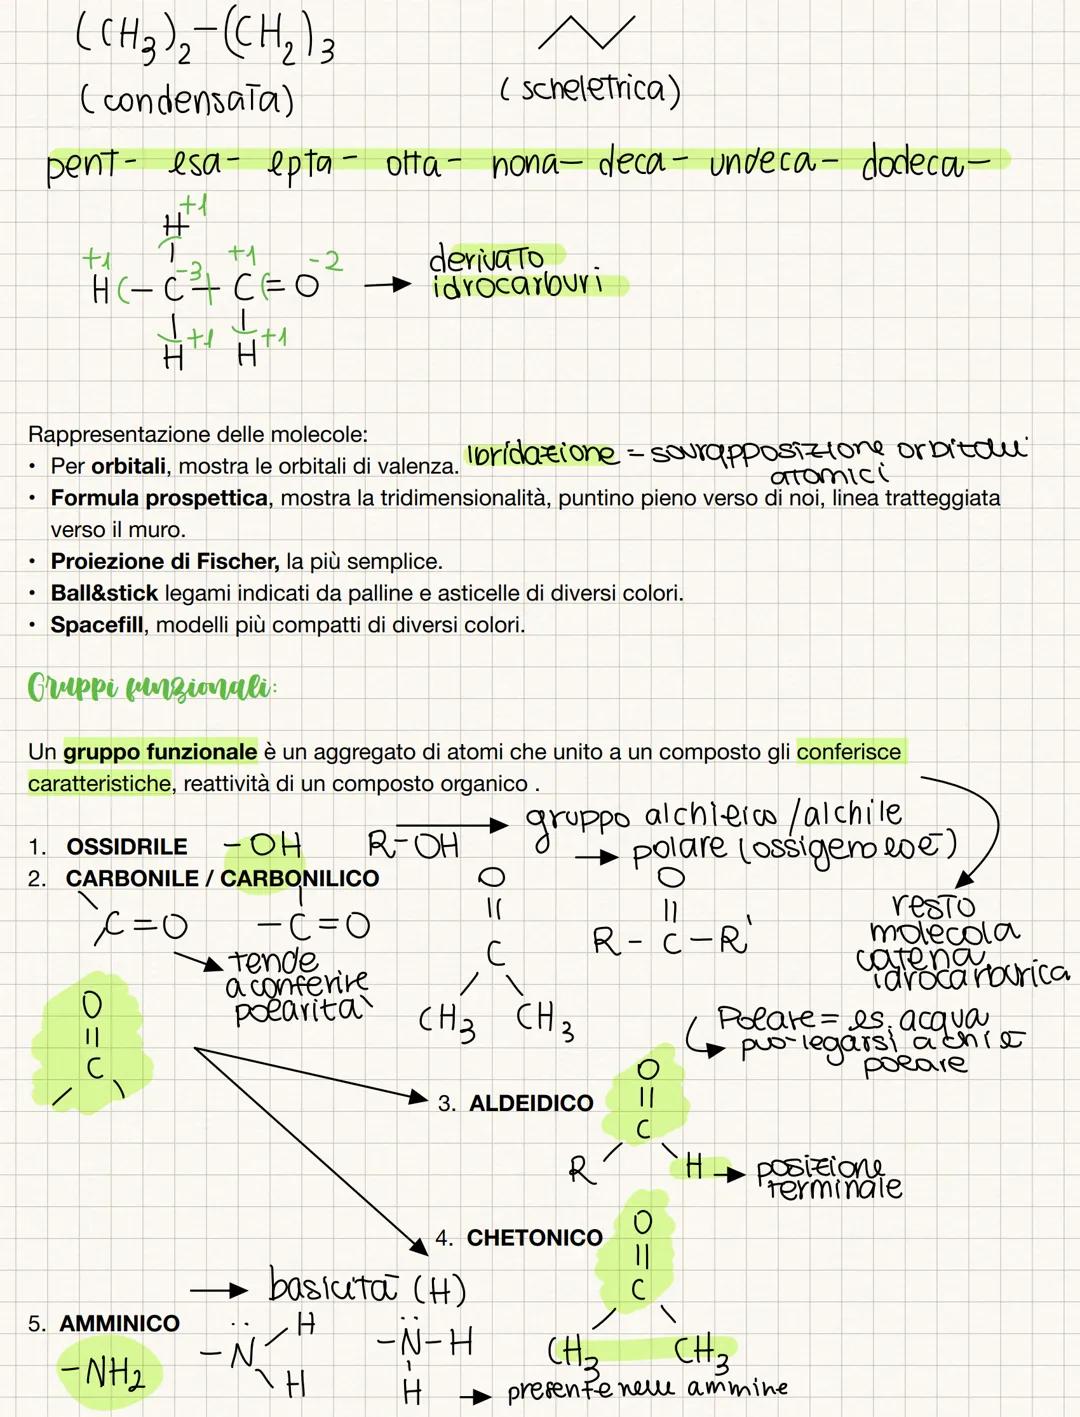 (CH3)2-(CH2)3
(condensata)
(scheletrica)
pent- esa- epta- otta- nona- deca- undeca- dodeca-
+1
H
+1 -3 +1 -2
H-C-C=O → derivato
idrocarburi
+1 +1
H H
Rappresentazione delle molecole:
• Per orbitali, mostra le orbitali di valenza.
ibridazione = sovrapposizione orbitali
atomici
• Formula prospettica, mostra la tridimensionalità, puntino pieno verso di noi, linea tratteggiata
verso il muro.
• Proiezione di Fischer, la più semplice.
• Ball&stick legami indicati da palline e asticelle di diversi colori.
• Spacefill, modelli più compatti di diversi colori.
Gruppi funzionali:
Un gruppo funzionale è un aggregato di atomi che unito a un composto gli conferisce
caratteristiche, reattività di un composto organico .
1. OSSIDRILE -OH R-OH → gruppo alchilico / alchile
→ polare (ossigeno e o e⁻)
2. CARBONILE / CARBONILICO
C=O -C=O
tende
a conferire
polarità
O
||
C
CH3 CH3
O
||
R-C-R'
resto
molecola
catena
idrocarburica
Polare = es. acqua
può legarsi a chi è
polare
O
||
C
3. ALDEIDICO
O
||
C
R H → posizione
terminale
4. CHETONICO
O
||
C
CH3 CH3
→ basicità (H)
5. AMMINICO
-NH2
-N H
H
-N-H
H
→ presente nelle ammine